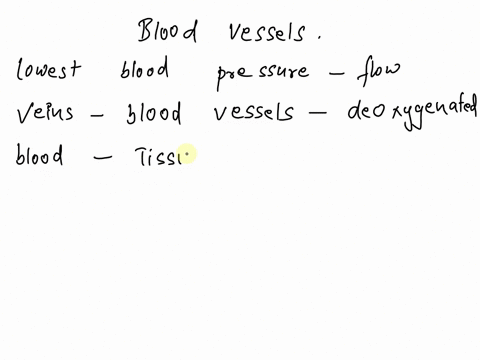 Blood vessels.
lowest blood pressure - flow
veins - blood vessels - deoxygenated
blood - Tissu